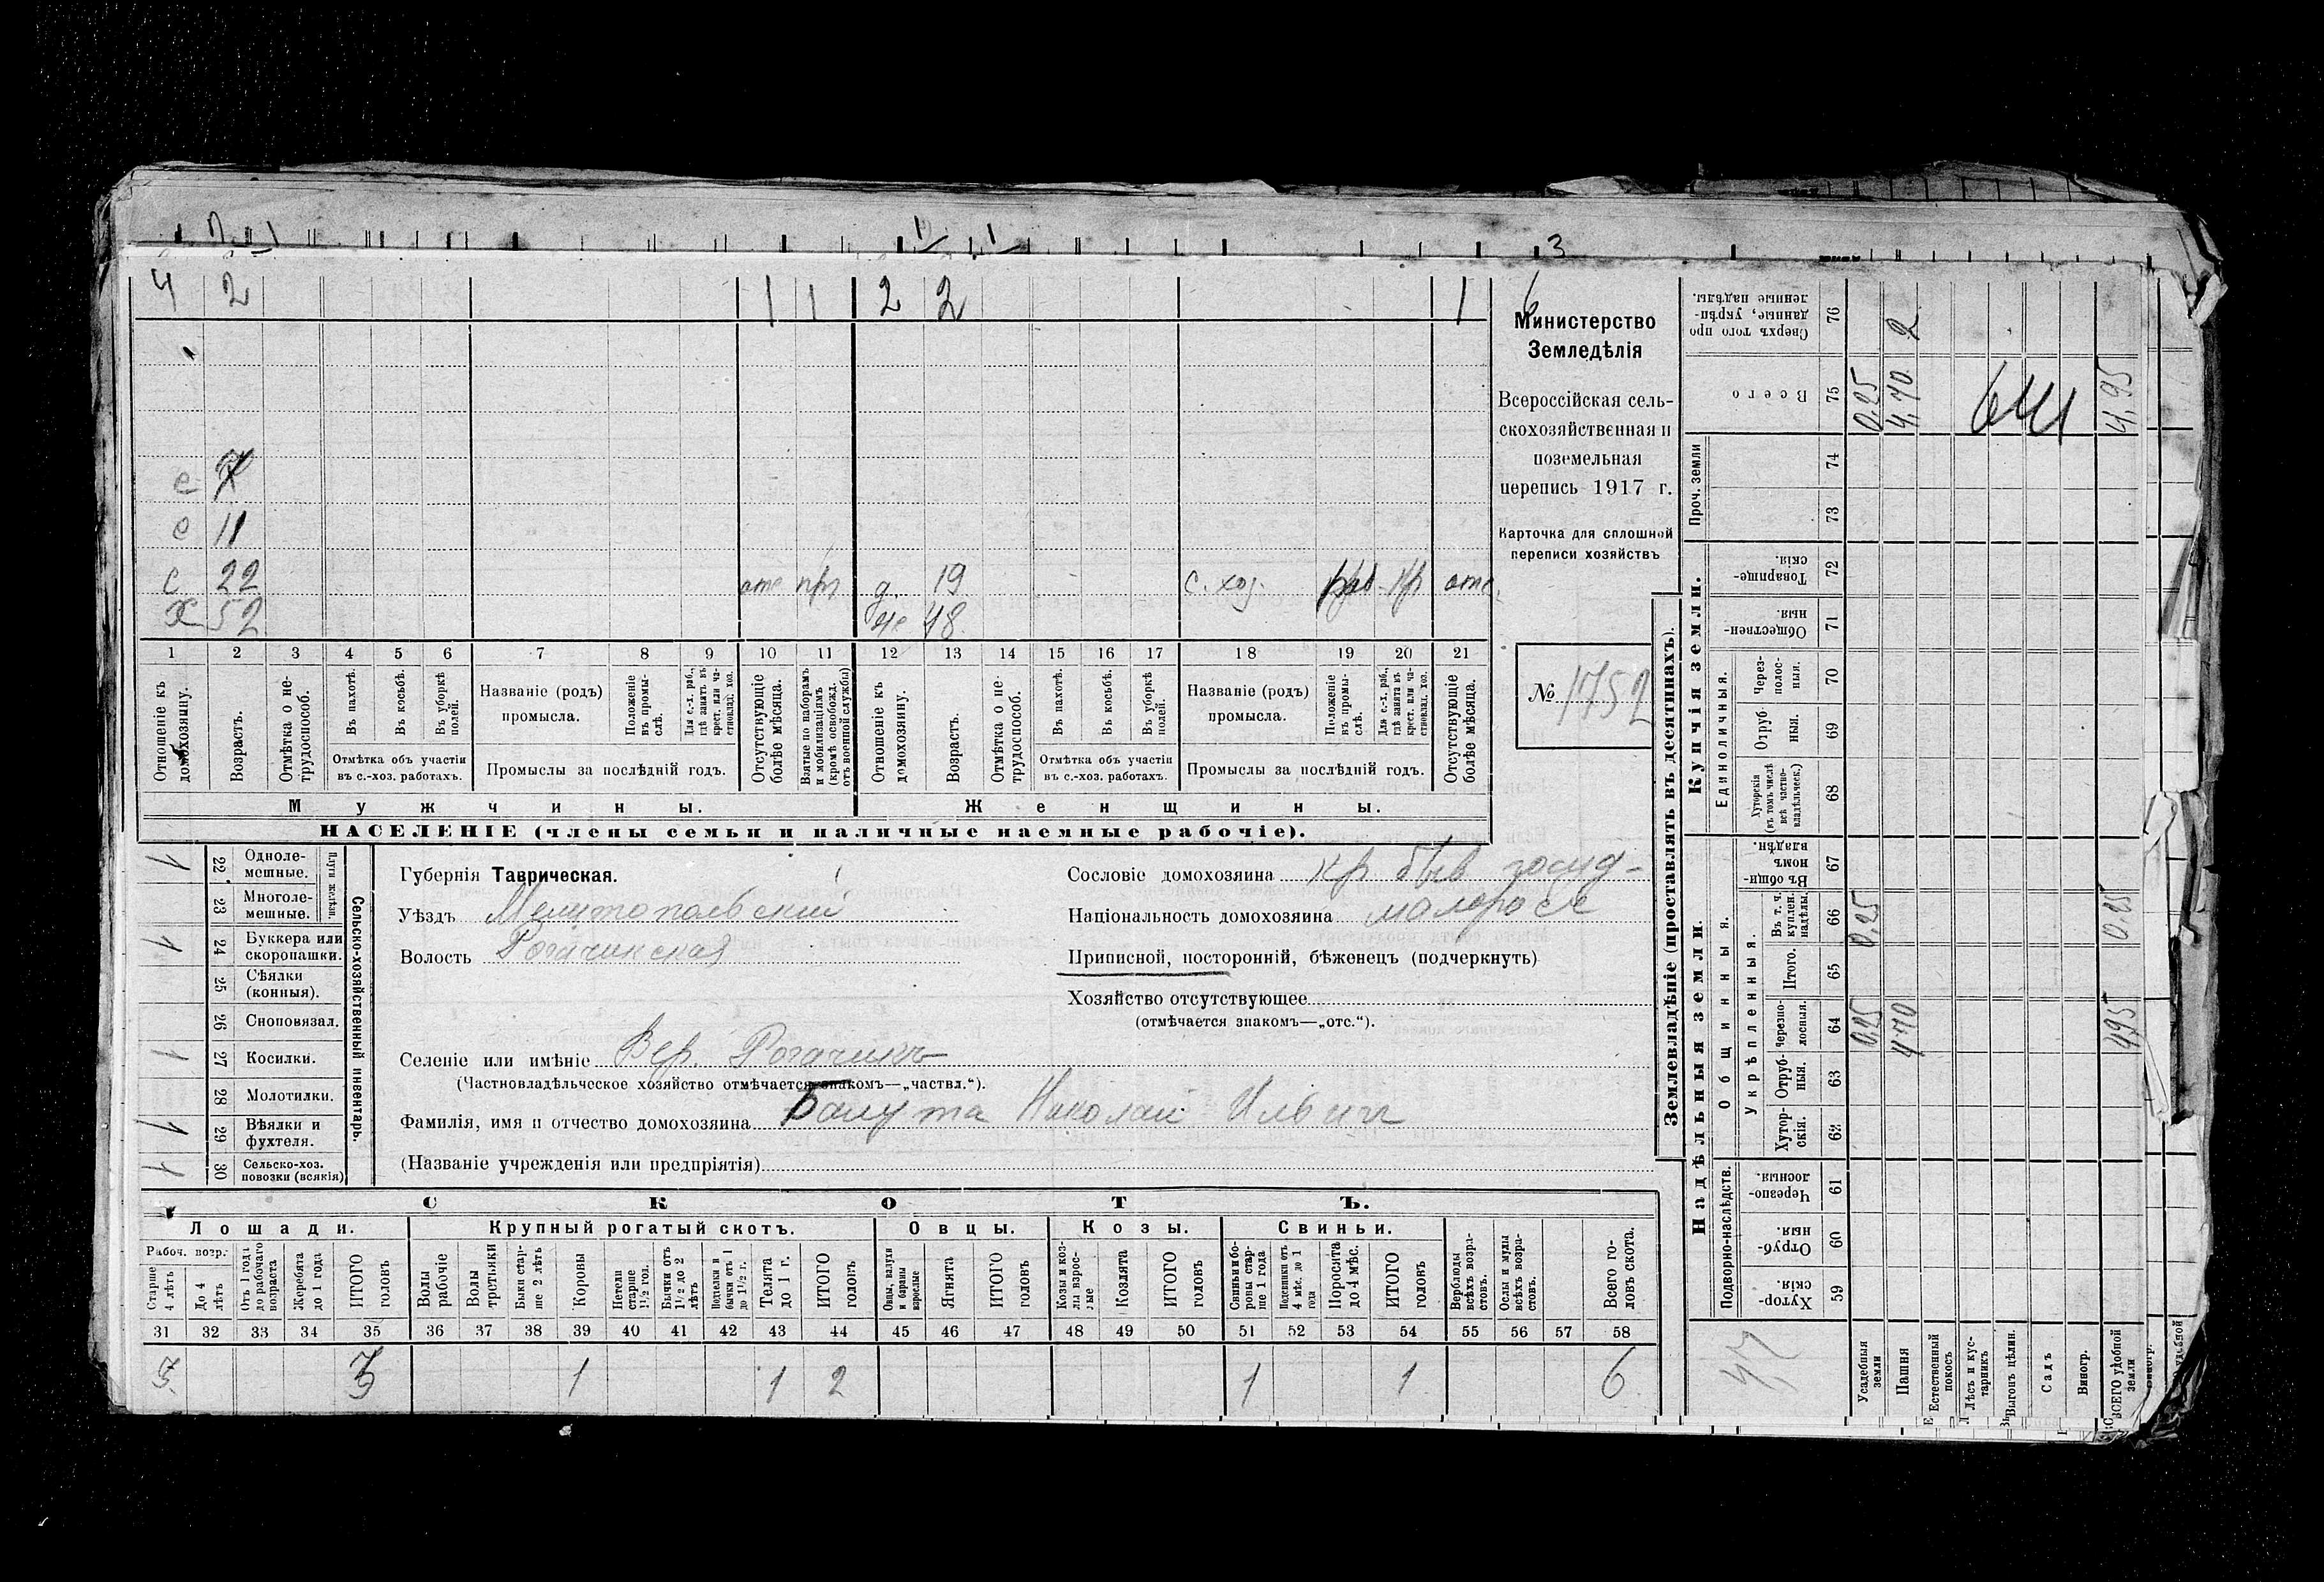 4 2 1 1 2 2 1 6
с 7
с 11
с 22 отс пр д. 19 с. хоз. раб кр отс.
х 52 же 48
1 2 3 4 5 6 7 8 9 10 11 12 13 14 15 16 17 18 19 20 21
Отношеніе къ домохозяину.
Возрастъ.
Отмѣтка о не-трудоспособ.
Въ пахотѣ.
Въ косьбѣ.
Въ уборкѣ полей.
Отмѣтка объ участіи
въ с.-хоз. работахъ.
Названіе (родъ)
промысла.
Положеніе въ промы-слѣ.
Для с.-х. раб., гдѣ занятъ въ крест. или ча-стновлад. хоз.
Промыслы за послѣдній годъ.
Отсутствующіе болѣе мѣсяца.
Взятые по наборамъ и мобилизаціямъ (кромѣ освобожд. отъ военной службы)
Отношеніе къ домохозяину.
Возрастъ.
Отмѣтка о не-трудоспособ.
Въ пахотѣ.
Въ косьбѣ.
Въ уборкѣ полей.
Отмѣтка объ участіи
въ с.-хоз. работахъ.
Названіе (родъ)
промысла.
Положеніе въ промы-слѣ.
Для с.-х. раб., гдѣ занята въ крест. или ча-стновлад. хоз.
Промыслы за послѣдній годъ.
Отсутствующіе болѣе мѣсяца.
Мужчины.
Женщины.
НАСЕЛЕНІЕ (члены семьи и наличные наемные рабочіе).
Министерство
Земледѣлія
Всероссійская сель-
скохозяйственная и
поземельная
перепись 1917 г.
Карточка для сплошной
переписи хозяйствъ
№ 1752
Сельско-хозяйственный инвентарь.
Плуги желѣзн.
1 22 Одноле-мешные.
23 Многоле-мешные.
1 24 Буккера или скоропашки.
25 Сѣялки (конныя).
26 Сноповязал.
1 27 Косилки.
28 Молотилки.
1 29 Вѣялки и фухтеля.
1 30 Сельско-хоз. повозки (всякія)
Губернія Таврическая.
Уѣздъ Мелитопольскій
Волость Рогачикская
Сословіе домохозяина кр. быв госуд-
Національность домохозяина малоросс
Приписной, посторонній, бѣженецъ (подчеркнуть)
Хозяйство отсутствующее
(отмѣчается знакомъ—„отс.“).
Селеніе или имѣніе Вер. Рогачикъ
(Частновладѣльческое хозяйство отмѣчается знакомъ—„частвл.“).
Фамилія, имя и отчество домохозяина Балута Николай Ильичъ
(Названіе учрежденія или предпріятія)
СКОТЪ.
Лошади.
Крупный рогатый скотъ.
Овцы.
Козы.
Свиньи.
Рабоч. возр.
Старше 4 лѣтъ
До 4 лѣтъ
Отъ 1 года до рабочаго возраста
Жеребята до 1 года
ИТОГО головъ
Волы рабочіе
Волы третьяки
Быки стар-ше 2 лѣтъ
Коровы
Нетели старше 1½ год.
Бычки отъ 1½ до 2 лѣтъ
Подтелки и бычки отъ 1 до 1½ г.
Телята до 1 г.
ИТОГО головъ
Овцы, валухи и бараны взрослые
Ягнята
ИТОГО головъ
Козы и коз-лы взрос-лые
Козлята
ИТОГО головъ
Свиньи и бо-ровы стар-ше 1 года
Подсвинки отъ 4 мѣс. до 1 года
Поросята до 4 мѣс.
ИТОГО головъ
Верблюды всѣхъ возра-стовъ.
Ослы и мулы всѣхъ возра-стовъ.
Всего го-ловъ скота.
31 32 33 34 35 36 37 38 39 40 41 42 43 44 45 46 47 48 49 50 51 52 53 54 55 56 57 58
3 3 1 1 2 1 1 6
Землевладѣніе (проставлять въ десятинахъ).
Надѣльныя земли.
Купчія земли.
Проч. земли
Подворно-наслѣдств.
Общинныя.
Укрѣпленныя.
Единоличныя.
59 Хутор-скія.
60 Отруб-ныя.
61 Черезпо-лосныя.
62 Хутор-скія.
63 Отруб-ныя.
64 Черезпо-лосныя.
65 Итого.
66 Въ т. ч. куплен. надѣлы.
67 Въ общи-номъ владѣн.
68 Хуторскія (въ томъ числѣ всѣ частно-владѣльческ.)
69 Отруб-ныя.
70 Через-полос-ныя.
71 Обществен-ныя.
72 Товарище-скія.
73
74
75 Всего
76 Сверхъ того про-данные, укрѣп-ленные надѣлы.
Усадебныя земли 0,25 0,25 0,25
Пашня 4,70 4,70 2
Естественный покосъ
Лѣсъ и кус-тарникъ
Выгонъ цѣлин.
Садъ
Виногр.
ВСЕГО удобной земли 4,95 0,25 4,95